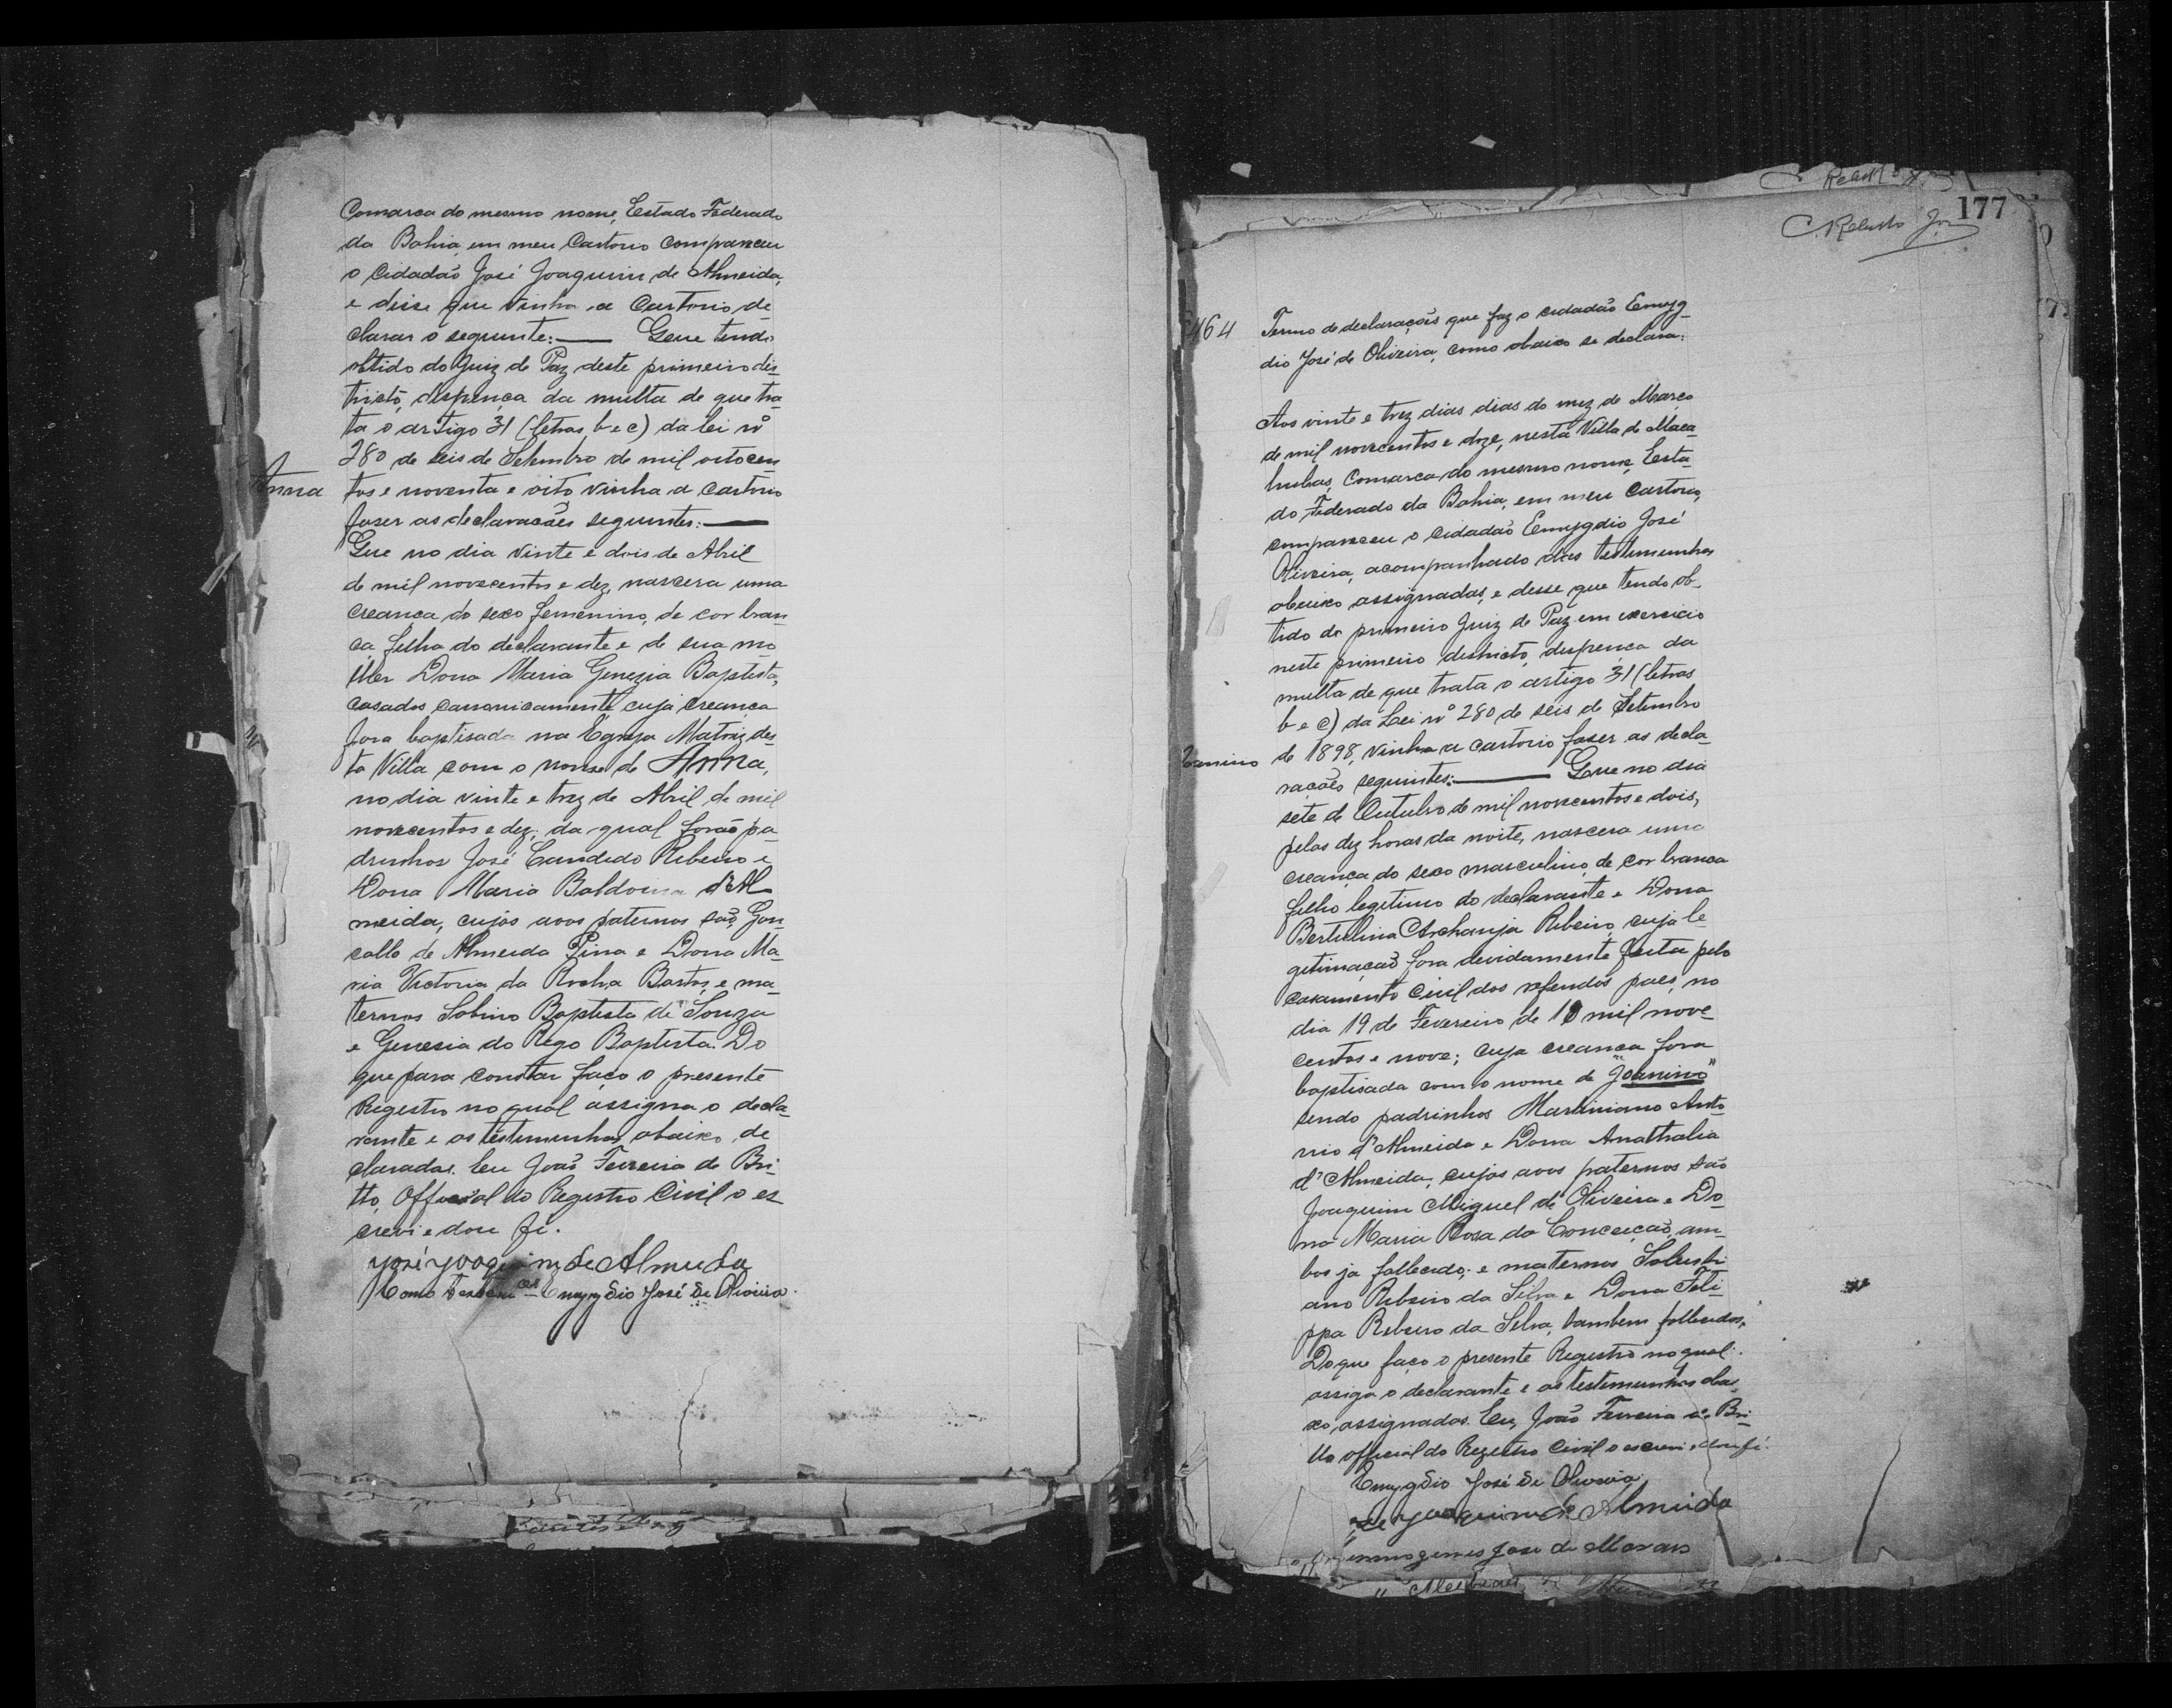 Comarca do mesmo nome, Estado Federado
da Bahia em meu Cartorio compareceu
o Cidadão José Joaquim de Almeida,
e disse que vinha a Cartorio de
clarar o seguinte:— Que tendo
obtido do Juiz de Paz deste primeiro dis-
tricto, dispença da multa de que tra-
ta o artigo 31 (letras b e c) da lei nº
280 de seis de Setembro de mil oitocen
Anna
tos e noventa e oito vinha a cartorio
faser as declaracões seguintes:—
Que no dia vinte e dois de Abril
de mil novecentos e dez, nascera uma
creança do sexo femenino, de cor bran
ca filha do declarante e de sua mo
lher Dona Maria Genezia Baptista,
casados canonicamente, cuja creança
fora baptisada na Egreja Matriz des-
ta Villa com o nome de Anna,
no dia vinte e trez de Abril de mil
novecentos e dez; da qual forão pa-
drinhos José Candido Ribeiro e
Dona Maria Baldoina d'Al-
meida, cujos avos paternos são, Gon
callo de Almeida Pina e Dona Ma-
ria Victoria da Rocha Bastos, e ma-
ternos Sabino Baptista de Souza
e Genesia do Rego Baptista. Do
que para constar faço o presente
Registro no qual assigna o decla-
rante e as testimunhas abaixo de
claradas. Eu João Ferreira de Bri-
tto, Official do Registro Civil o es
crevi e dou fé.
José Joaquim de Almeida
Como Emygdio José de Oliveira.
177
C. Rebello Jor
464
Termo de declarações que faz o cidadão Emyg-
dio José de Oliveira, como abaixo se declara:
Aos vinte e trez dias dias do mez de Março
de mil novecentos e doze, nesta Villa de Maca-
hubas, Comarca do mesmo nome, Esta-
do Federado da Bahia, em meu Cartorio,
compareceu o cidadão Emygdio José
Oliveira, acompanhado das testimunhas
abaixo assignadas, e desse que tendo ob-
tido do primeiro Juiz de Paz em exercicio
neste primeiro destricto, despença da
multa de que trata o artigo 31 (letras
b e c) da Lei nº 280 de seis de Setembro
Joanino
de 1898, vinha a cartorio faser as decla-
rações seguintes:— Que no dia
sete de Outubro de mil novecentos e dois,
pelas dez horas da noite, nascera uma
creança do sexo masculino, de cor branca
filho legitimo do declarante e Dona
Bertulina Archanja Ribeiro, cuja le
gitimação fora devidamente feita pelo
casamento Civil dos referidos paes, no
dia 19 de Fevereiro de 10 mil nove-
centos e nove; cuja creança fora
baptisada com o nome de "Joanino"
sendo padrinhos Martiniano Anto-
nio d'Almeida e Dona Anathalia
d'Almeida, cujos avos paternos são
Joaquim Miguel de Oliveira e Do
na Maria Rosa da Conceição, am-
bos ja fallecido; e maternos Salusti
ano Ribeiro da Silva e Dona Feli-
ppa Ribeiro da Silva, tambem fallecidos.
Do que faço o presente Registro no qual
assiga o declarante e as testemunhas abai
xo assignadas. Eu, João Ferreira de Bri-
tto official do Registro Civil o escrevi e dou fé.
Emygdio José de Oliveira
José Joaquim de Almeida
Hermogenes José de Moraes